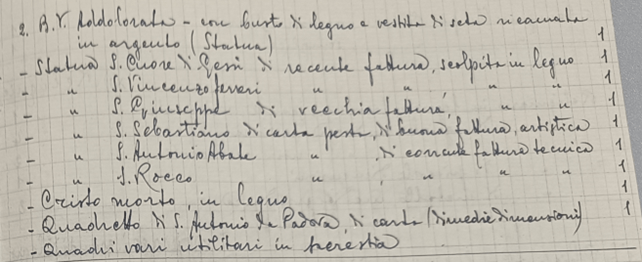 2. B. V. Addolorata - con busto di legno e vestita di seta ricamata
in argento (Statua) 1
- Statua S. Cuore di Gesù di recente fattura, scolpita in legno 1
- " S. Vincenzo Ferreri " " " " 1
- " S. Giuseppe di vecchia fattura, " " 1
- " S. Sebastiano di carta pesta, di buona fattura, artistica 1
- " S. Antonio Abate " , di fattura tecnica 1
- " S. Rocco " , " " " 1
- Cristo morto, in legno 1
- Quadretto di S. Antonio da Padova, di carta (di medie dimensioni) 1
- Quadri vari utilitari in